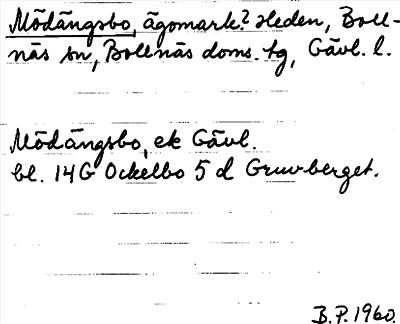 Mödängsbo, ägomark? Heden, Boll-
näs sn, Bollnäs doms. tg, Gävl. l.
Mödängsbo, ek Gävl.
bl. 14G Ockelbo 5 d Gruvberget.
B.P. 1960.